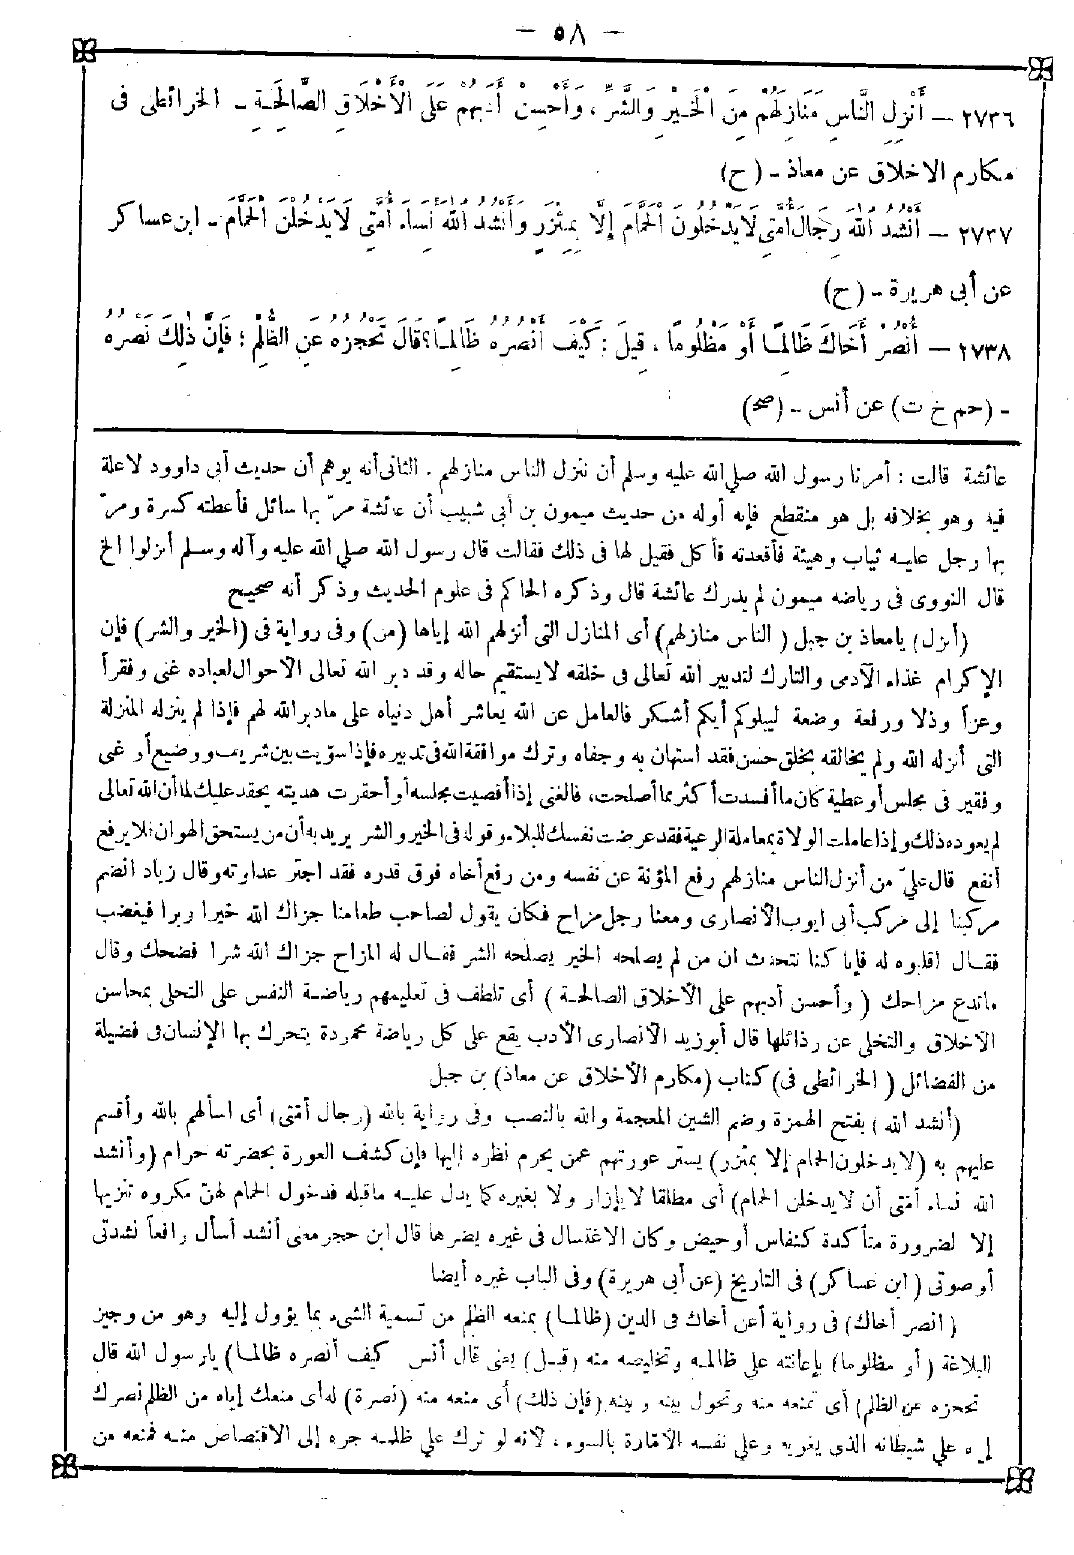 — ٥٨ —
٢٧٣٦ — أَنْزِلِ النَّاسَ مَنَازِلَهُمْ مِنَ الْخَيْرِ وَالشَّرِّ ، وَأَحْسِنْ أَدَبَهُمْ عَلَى الْأَخْلَاقِ الصَّالِحَةِ - الخرائطى فى
مكارم الاخلاق عن معاذ - (ح)
٢٧٣٧ — أَنْشُدُ اللهَ رِجَالَ أُمَّتِى لَا يَدْخُلُونَ الْحَمَّامَ إِلَّا بِمِئْزَرٍ وَأَنْشُدُ اللهَ نِسَاءَ أُمَّتِى لَا يَدْخُلْنَ الْحَمَّامَ - ابن عساكر
عن أبى هريرة - (ح)
٢٧٣٨ — أُنْصُرْ أَخَاكَ ظَالِمًا أَوْ مَظْلُومًا ، قِيلَ : كَيْفَ أَنْصُرُهُ ظَالِمًا؟ قَالَ تَحْجُزُهُ عَنِ الظُّلْمِ ؛ فَإِنَّ ذٰلِكَ نَصْرُهُ
- (حم خ ت) عن أنس - (صح)
عائشة قالت : أمرنا رسول الله صلي الله عليه وسلم أن ننزل الناس منازلهم . الثانى أنه يوهم أن حديث أبى داوود لا علة
فيه وهو بخلافه بل هو منقطع فإنه أوله من حديث ميمون بن أبى شبيب أن عائشة مرّ بها سائل فأعطته كسرة ومرّ
بها رجل عليه ثياب وهيئة فأقعدته فأكل فقيل لها فى ذلك فقالت قال رسول الله صلي الله عليه وآله وسلم أنزلوا الخ
قال النووى فى رياضه ميمون لم يدرك عائشة قال وذكره الحاكم فى علوم الحديث وذكر أنه صحيح
(أنزل) يا معاذ بن جبل (الناس منازلهم) أى المنازل التى أنزلهم الله إياها (من) وفى رواية فى (الخير والشر) فإن
الإكرام غذاء الآدمى والتارك لتدبير الله تعالى فى خلقه لا يستقيم حاله وقد دبر الله تعالى الأحوال لعباده غنى وفقرأ
وعزاً وذلا ورفعة وضعة ليبلوكم أيكم أشكر فالعامل عن الله يعاشر أهل دنياه على مادبر الله لهم فإذا لم ينزله المنزلة
التى أنزله الله ولم يخالقه بخلق حسن فقد استهان به وجفاه وترك موافقة الله فى تدبيره فإذا سويت بين شريف ووضيع أو غنى
وفقير فى مجلس أو عطية كان ما أفسدت أكثر مما أصلحت، فالغنى إذا أقصيت مجلسه أو أحقرت هديته يحقد عليك لما أن الله تعالى
لم يعوده ذلك وإذا عاملت الولاة بمعاملة الرعية فقد عرضت نفسك للبلاء وقوله فى الخير والشر يريد به أن من يستحق الهوان فلا يرفع
أنفع قال علىّ من أنزل الناس منازلهم رفع المؤنة عن نفسه ومن رفع أخاه فوق قدره فقد اجتر عداوته وقال زياد انضم
مركبنا إلى مركب أبى ايوب الأنصارى ومعنا رجل مزاح فكان يقول لصاحب طعامنا جزاك الله خيرا وبرا فيغضب
فقال اقلبوه له فإنا كنا نتحدث ان من لم يصلحه الخير يصلحه الشر فقال له المزاح جزاك الله شرا فضحك وقال
ماتدع مزاحك (وأحسن أدبهم على الأخلاق الصالحة) أى تلطف فى تعليمهم رياضة النفس على التحلى بمحاسن
الأخلاق والتخلى عن رذائلها قال أبو زيد الأنصارى الأدب يقع على كل رياضة محمودة يتحرك بها الإنسان فى فضيلة
من الفضائل (الخرائطى فى) كتاب (مكارم الأخلاق عن معاذ) بن جبل
(أنشد الله) بفتح الهمزة وضم الشين المعجمة والله بالنصب وفى رواية بالله (رجال أمتى) أى اسألهم بالله وأقسم
عليهم به (لا يدخلون الحمام إلا بمئزر) يستر عورتهم عمن يحرم نظره إليها فإن كشف العورة بحضرته حرام (وأنشد
الله نساء أمتى أن لا يدخلن الحمام) أى مطلقا لا بإزار ولا بغيره كما يدل عليه ماقبله فدخول الحمام لهن مكروه تنزيها
إلا لضرورة متأكدة كنفاس أو حيض وكان الاغتسال فى غيره يضرها قال ابن حجر معنى أنشد أسأل رافعاً نشدتى
أو صوتى (ابن عساكر) فى التاريخ (عن أبى هريرة) وفى الباب غيره أيضا
(انصر أخاك) فى رواية أعن أخاك فى الدين (ظالما) بمنعه الظلم من تسمية الشىء بما يؤول إليه وهو من وجيز
البلاغة (أو مظلوما) بإعانته على ظالمه وتخليصه منه (قيل) يعنى قال أنس كيف أنصره ظالما) يارسول الله قال
تحجزه عن الظلم) أى تمنعه منه وتحول بينه وبينه (فإن ذلك) أى منعه منه (نصرة) له أى منعك إياه من الظلم نصرك
إياه على شيطانه الذى يغويه وعلى نفسه الأمارة بالسوء ، لأنه لو ترك على ظلمه جره إلى الاقتصاص منه فمنعه من